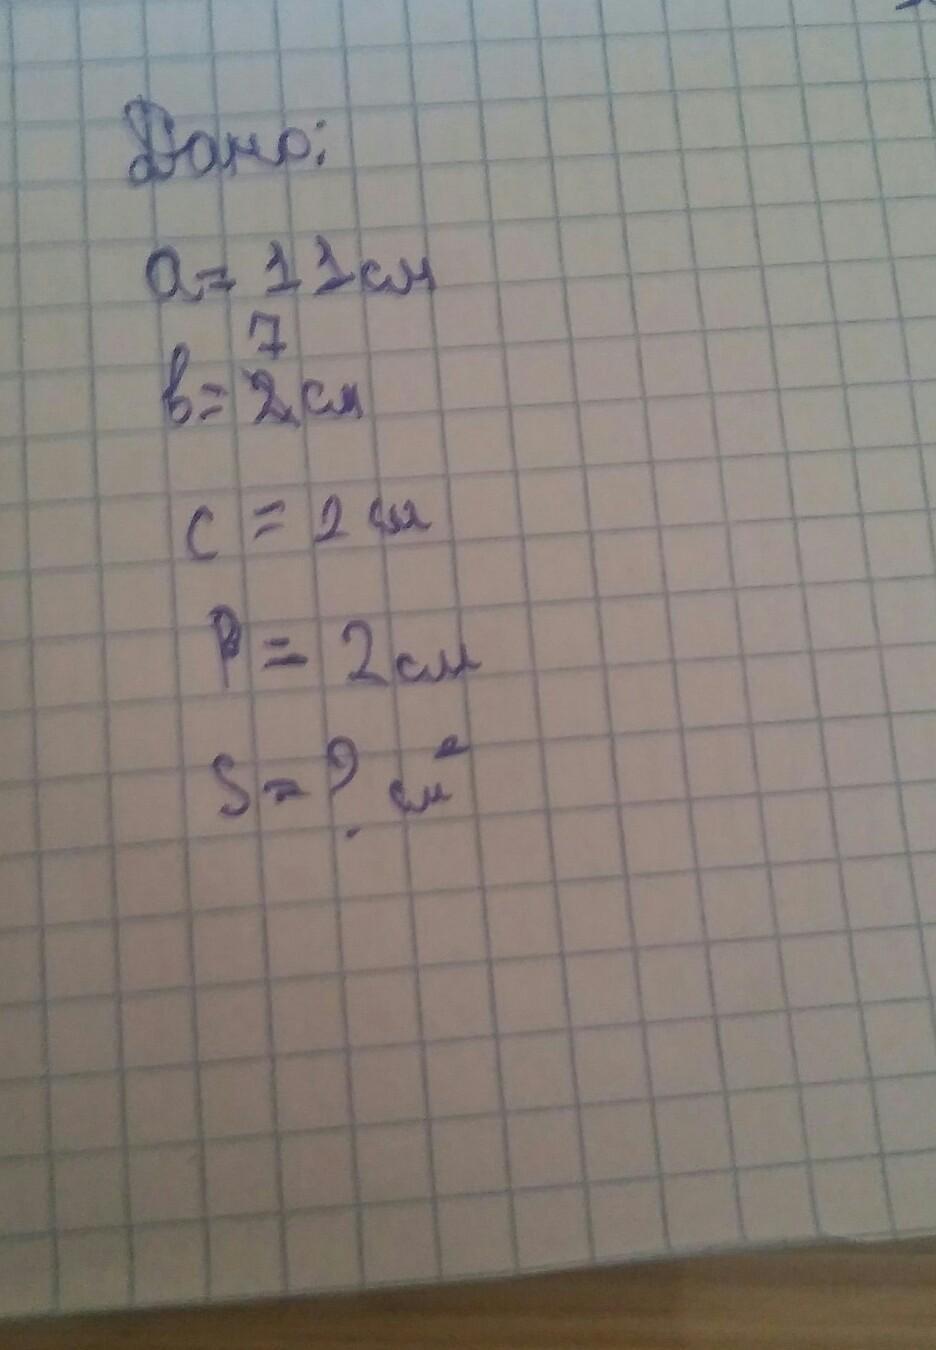 Дано:
a= 11см
7
b= 2см
c = 2 см
P = 2см
S = ? см²